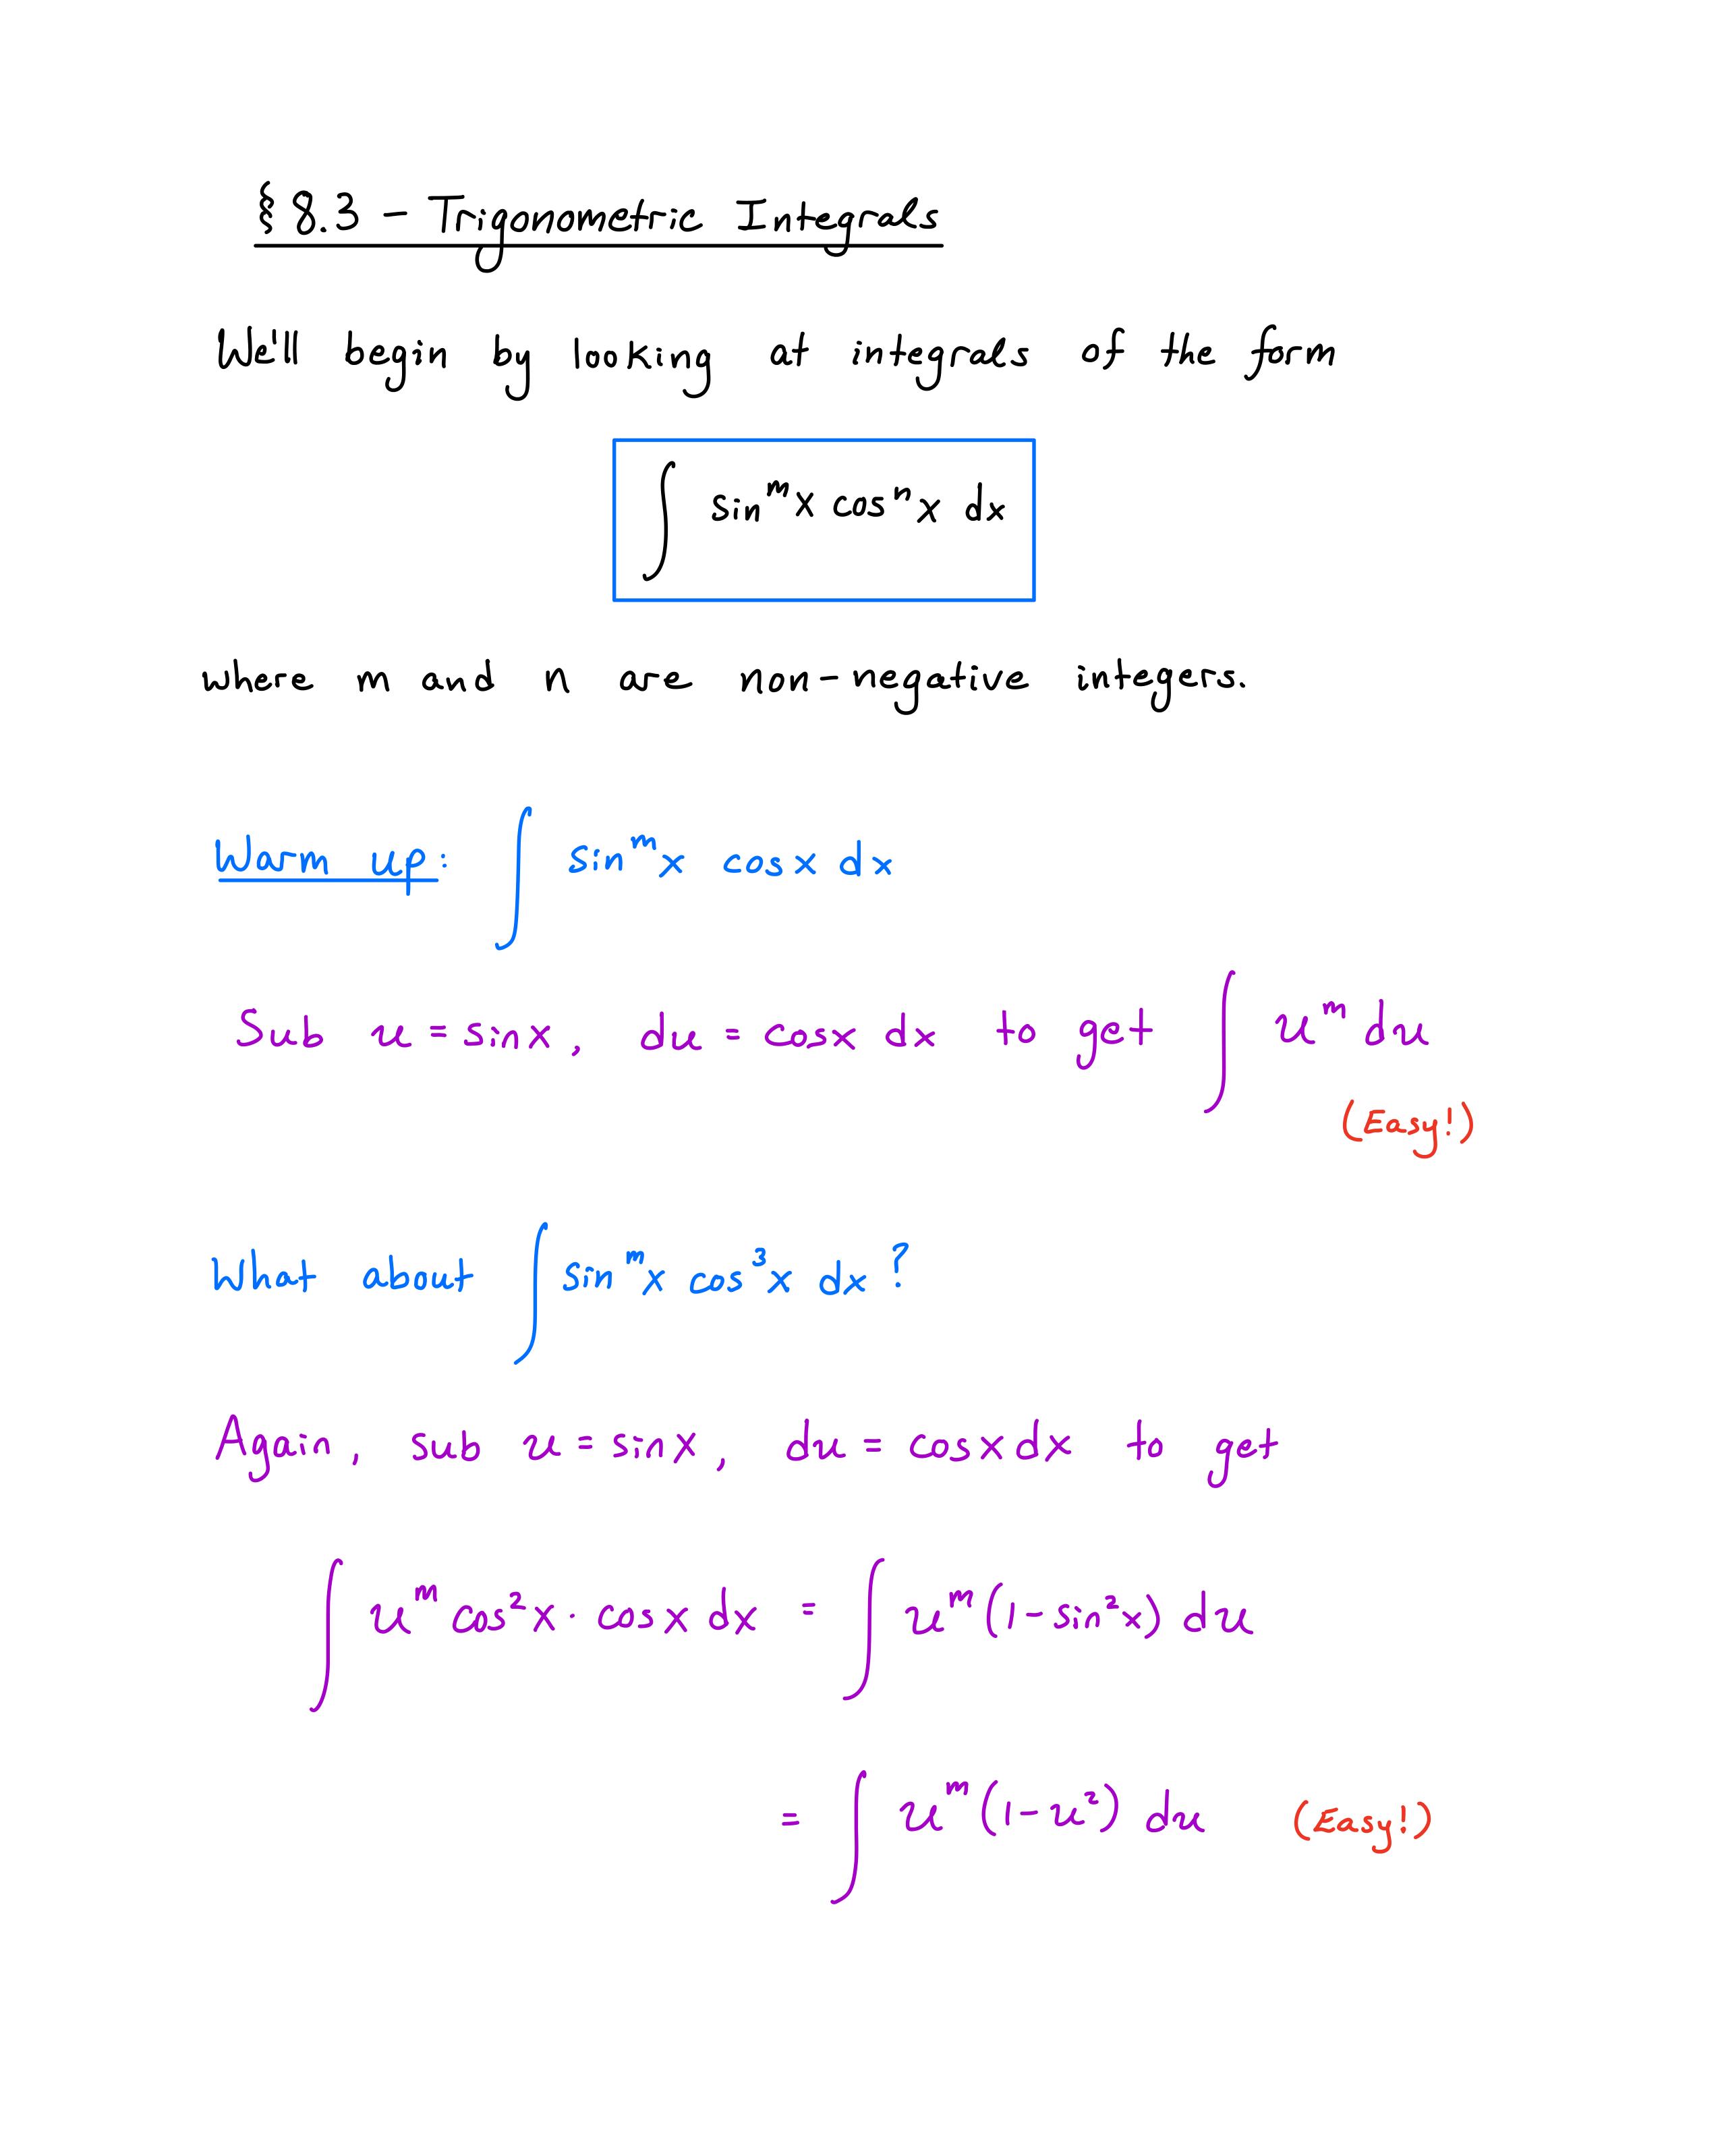 § 8.3 – Trigonometric Integrals
We'll begin by looking at integrals of the form
∫ sinᵐx cosⁿx dx
where m and n are non-negative integers.
Warm up: ∫ sinᵐx cosx dx
Sub u = sinx, du = cosx dx to get ∫ uᵐ du
(Easy!)
What about ∫ sinᵐx cos³x dx ?
Again, sub u = sinx, du = cosx dx to get
∫ uᵐ cos²x · cosx dx = ∫ uᵐ(1 – sin²x) du
= ∫ uᵐ(1 – u²) du (Easy!)